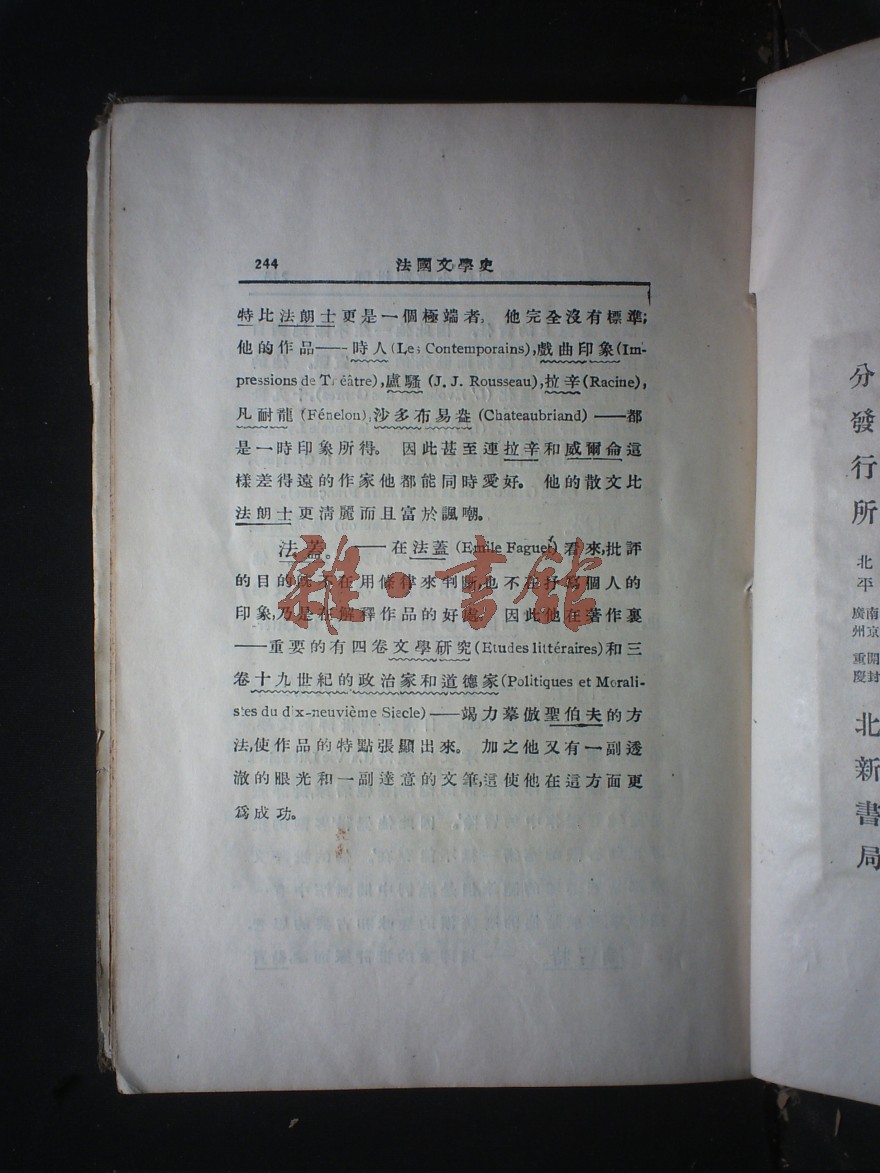 244 法國文學史
特比法朗士更是一個極端者。 他完全沒有標準;
他的作品——時人(Les Contemporains),戲曲印象(Im-
pressions de Téâtre),盧騷 (J. J. Rousseau),拉辛(Racine),
凡耐龍(Fénelon),沙多布易盎(Chateaubriand)——都
是一時印象所得。 因此甚至連拉辛和威爾侖這
樣差得遠的作家他都能同時愛好。 他的散文比
法朗士更清麗而且富於諷嘲。
法蓋。——在法蓋(Emile Faguet)看來,批評
的目的既不在用條律來判斷,也不在抒寫個人的
印象,乃是在解釋作品的好處。 因此他在著作裏
——重要的有四卷文學研究(Etudes littéraires)和三
卷十九世紀的政治家和道德家(Politiques et Morali-
stes du dix-neuvième Siecle)——竭力摹倣聖伯夫的方
法,使作品的特點張顯出來。 加之他又有一副透
澈的眼光和一副達意的文筆,這使他在這方面更
爲成功。
雜·書館
分發行所
北平
南京
廣州
開封
重慶
北新書局